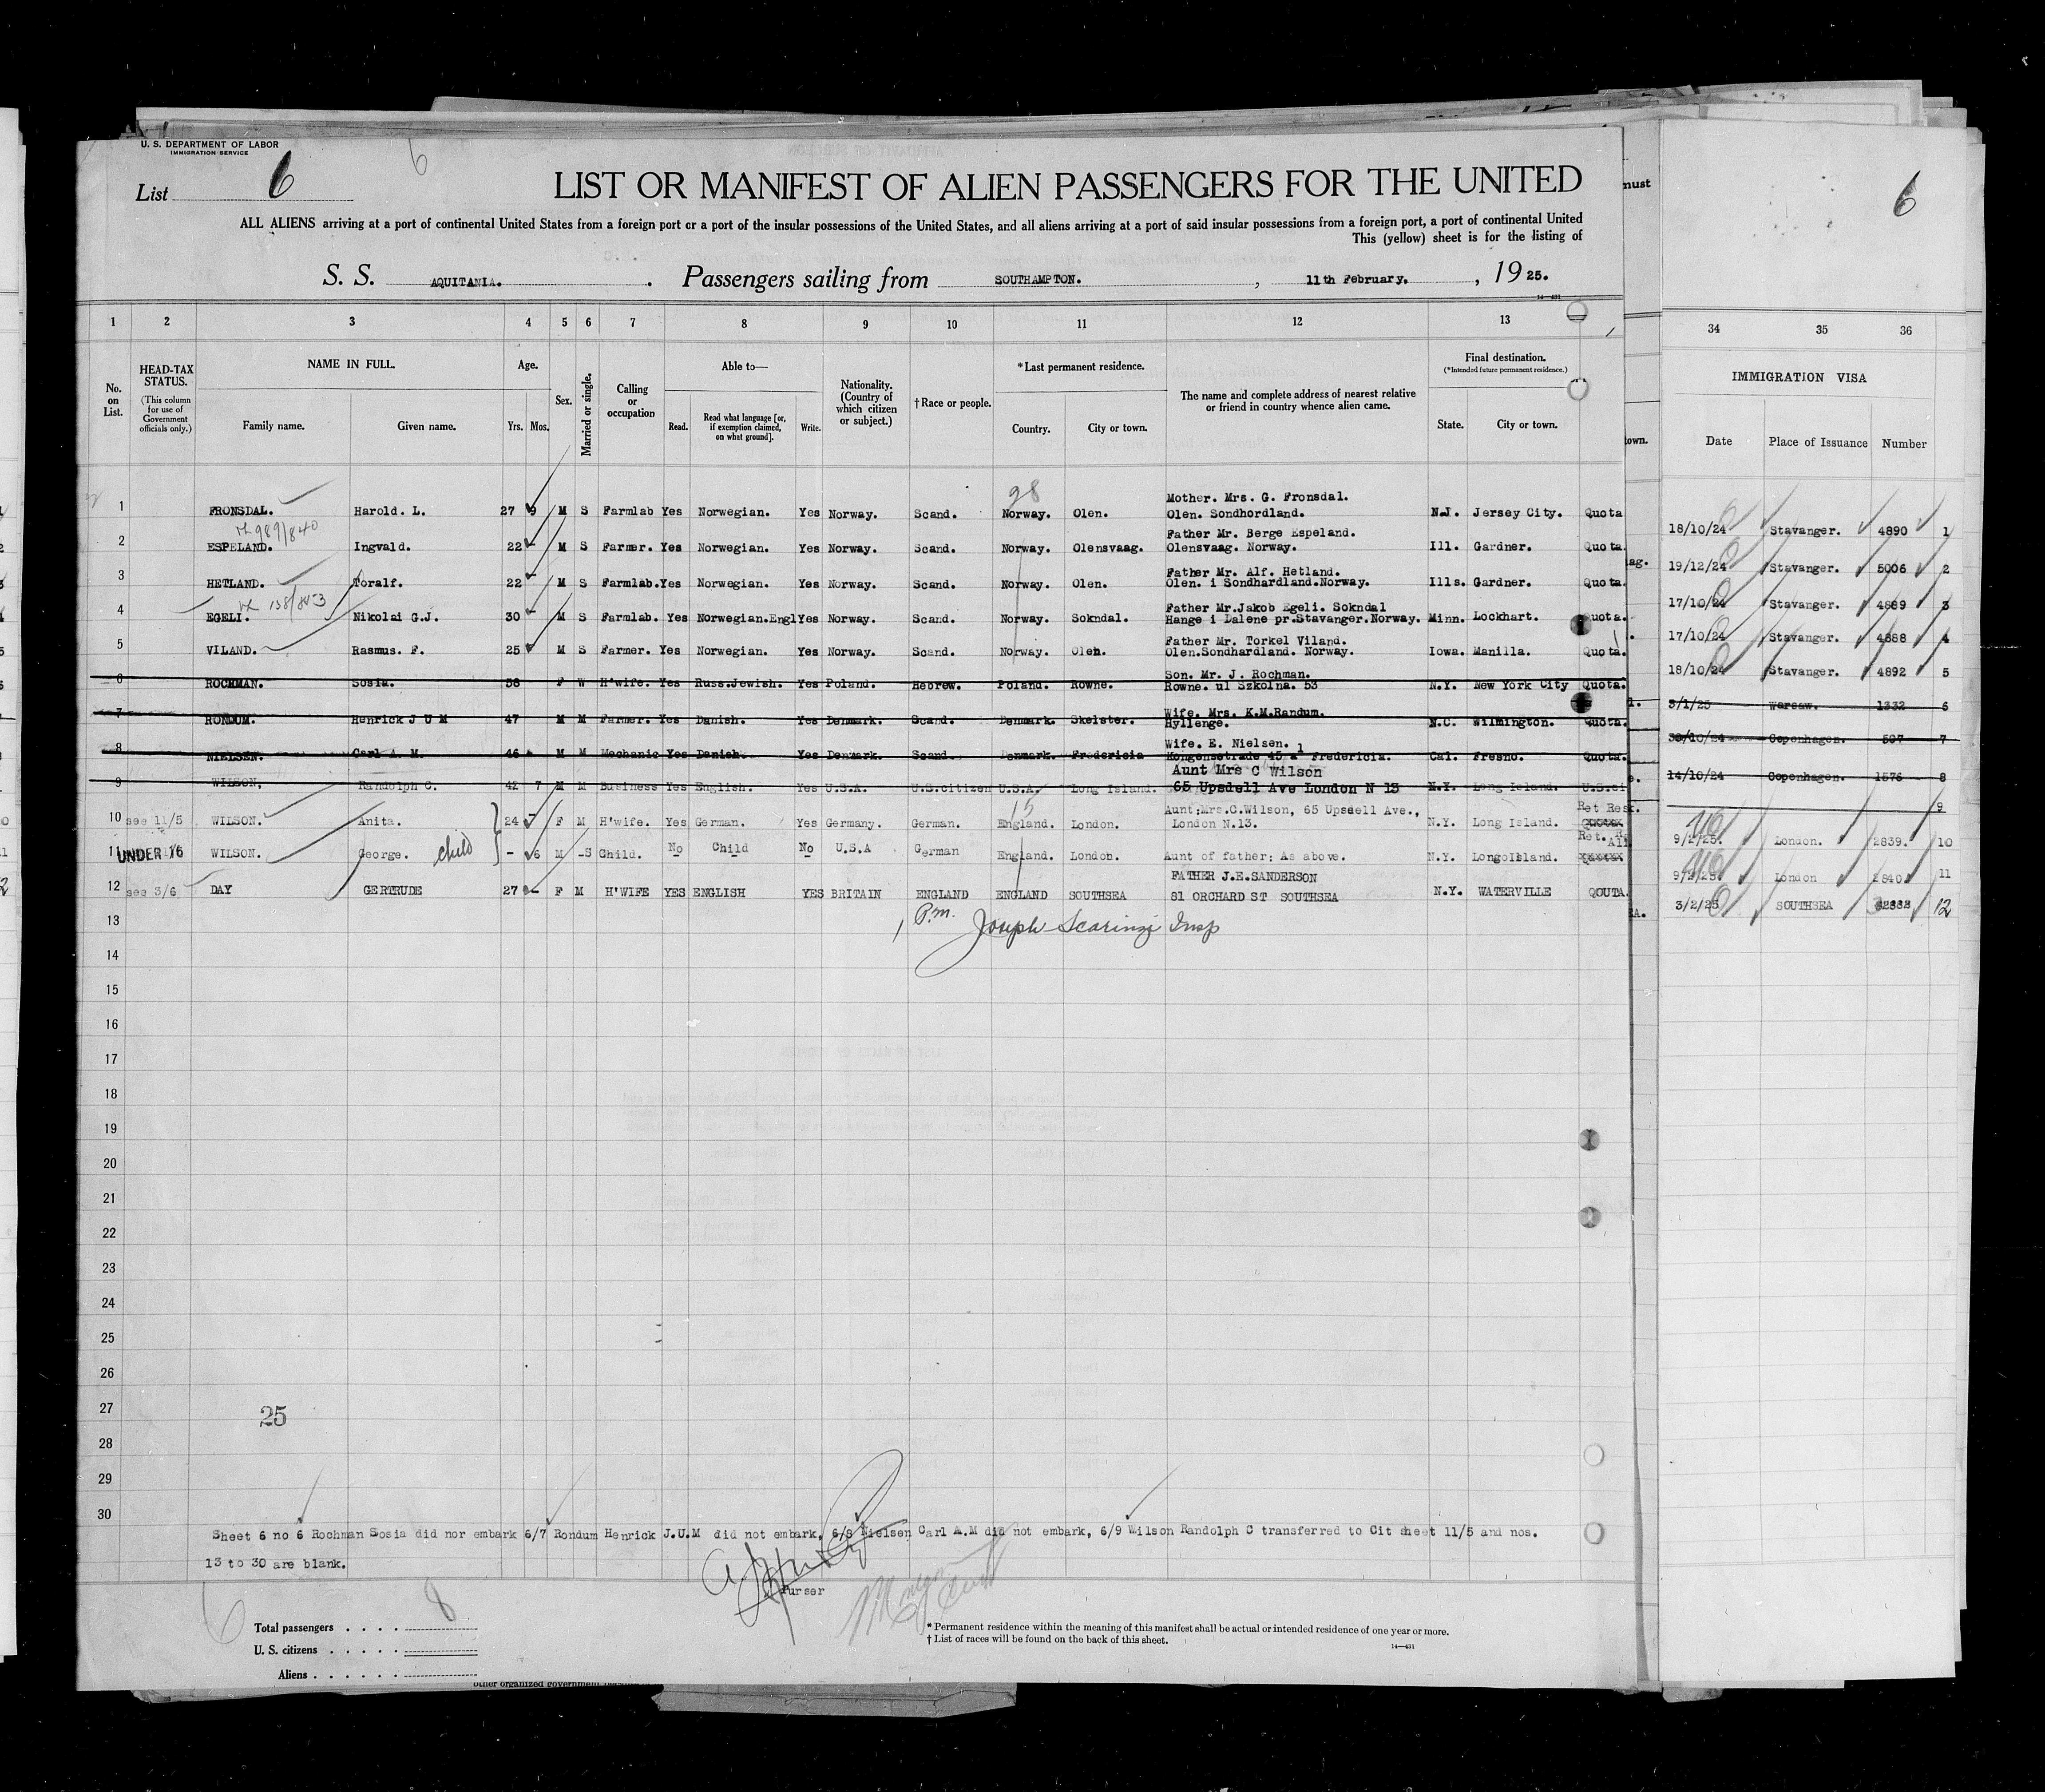 U. S. DEPARTMENT OF LABOR
IMMIGRATION SERVICE
6
List 6
LIST OR MANIFEST OF ALIEN PASSENGERS FOR THE UNITED
ALL ALIENS arriving at a port of continental United States from a foreign port or a port of the insular possessions of the United States, and all aliens arriving at a port of said insular possessions from a foreign port, a port of continental United
This (yellow) sheet is for the listing of
S. S. AQUITANIA. Passengers sailing from SOUTHAMPTON. , 11th February. , 19 25.
14—431
must 6
1 2 3 4 5 6 7 8 9 10 11 12 13 34 35 36
No. on List. HEAD-TAX STATUS. (This column for use of Government officials only.) NAME IN FULL. Family name. Given name. Age. Yrs. Mos. Sex. Married or single. Calling or occupation Able to— Read. Read what language [or, if exemption claimed, on what ground]. Write. Nationality. (Country of which citizen or subject.) †Race or people. *Last permanent residence. Country. City or town. The name and complete address of nearest relative or friend in country whence alien came. Final destination. (*Intended future permanent residence.) State. City or town. IMMIGRATION VISA Date Place of Issuance Number
98
Mother. Mrs. G. Fronsdal.
1 FRONSDAL. Harold. L. 27 9 M S Farmlab Yes Norwegian. Yes Norway. Scand. Norway. Olen. Olen. Sondhordland. N.J. Jersey City. Quota 18/10/24 Stavanger. 4890 1
989/840
Father Mr. Berge Espeland.
2 ESPELAND. Ingvald. 22 - M S Farmer. Yes Norwegian. Yes Norway. Scand. Norway. Olensvaag. Olensvaag. Norway. Ill. Gardner. Quota. 19/12/24 Stavanger. 5006 2
Father Mr. Alf. Hetland.
3 HETLAND. Toralf. 22 - M S Farmlab. Yes Norwegian. Yes Norway. Scand. Norway. Olen. Olen. i Sondhardland.Norway. Ills. Gardner. Quota. 17/10/24 Stavanger. 4889 3
138/843
Father Mr.Jakob Egeli. Sokndal
4 EGELI. Nikolai G.J. 30 - M S Farmlab. Yes Norwegian.Engl Yes Norway. Scand. Norway. Sokndal. Hange i Dalene pr.Stavanger.Norway. Minn. Lockhart. Quota. 17/10/24 Stavanger. 4888 4
Father Mr. Torkel Viland.
5 VILAND. Rasmus. F. 25 M S Farmer. Yes Norwegian. Yes Norway. Scand. Norway. Olen. Olen.Sondhardland. Norway. Iowa. Manilla. Quota. 18/10/24 Stavanger. 4892 5
Son. Mr. J. Rochman.
6 ROCHMAN. Sosia. 58 F W H'wife. Yes Russ.Jewish. Yes Poland. Hebrew. Poland. Rowne. Rowne. ul Szkolna. 53 N.Y. New York City Quota. 3/1/25 Warsaw. 1332 6
Wife. Mrs. K.M.Randum.
7 RONDUM. Henrick J U M 47 M M Farmer. Yes Danish. Yes Denmark. Scand. Denmark. Skelster. Hyllenge. N.C. Wilmington. Quota. 30/10/24 Copenhagen. 507 7
Wife. E. Nielsen. 1
8 NIELSEN. Carl A. M. 46 M M Mechanic Yes Danish. Yes Denmark. Scand. Denmark. Fredericia Kongensstrade 45 Fredericia. Cal. Fresno. Quota. 14/10/24 Copenhagen. 1576 8
Aunt Mrs C Wilson
9 WILSON, Randolph C. 42 7 M M Business Yes English. Yes U.S.A. U.S.citizen U.S.A. Long Island. 65 Upsdell Ave London N 13 N.Y. Long Island. U.S.ci 9
15
Aunt;Mrs.C.Wilson, 65 Upsdell Ave., Ret Res.
10 see 11/5 WILSON. Anita. 24 - F M H'wife. Yes German. Yes Germany. German. England. London. London N.13. N.Y. Long Island. 9/2/25. London. 2839. 10
11 UNDER 16 WILSON. George. child - 6 M S Child. No Child No U.S.A German England. London. Aunt of father; As above. N.Y. 9/2/25. London 2840 11
FATHER J.E.SANDERSON
12 see 3/6 DAY GERTRUDE 27 - F M H'WIFE YES ENGLISH YES BRITAIN ENGLAND ENGLAND SOUTHSEA 81 ORCHARD ST SOUTHSEA N.Y. WATERVILLE QOUTA. 3/2/25 SOUTHSEA 12
13 P.m. Joseph Scarinzi Insp
14
15
16
17
18
19
20
21
22
23
24
25
26
27
25
28
29
30
Sheet 6 no 6 Rochman Sosia did nor embark 6/7 Rondum Henrick J.U.M did not embark, 6/8 Nielsen Carl A.M did not embark, 6/9 Wilson Randolph C transferred to Cit sheet 11/5 and nos.
13 to 30 are blank.
Purser
Total passengers . . . . 8
U. S. citizens . . . . .
Aliens . . . . . .
* Permanent residence within the meaning of this manifest shall be actual or intended residence of one year or more.
† List of races will be found on the back of this sheet.
14—431